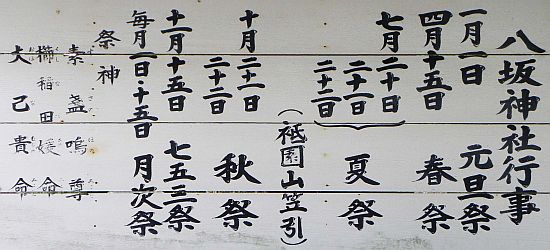 八坂神社行事
一月一日 元旦祭
四月十五日 春祭
七月二十日
二十一日
二十二日
夏祭
(祗園山笠引)
十月二十一日
二十二日
秋祭
十一月十五日 七五三祭
毎月一日・十五日 月次祭
祭神
素盞嗚尊
櫛稲田媛命
大己貴命